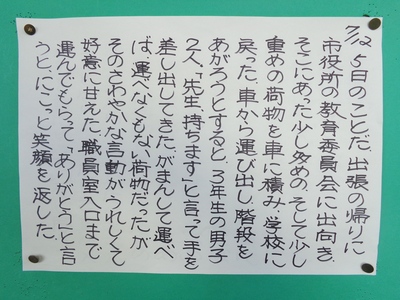 7/12
5日のことだ。出張の帰りに
市役所の教育委員会に出向き、
そこにあった少し多めの、そして少し
重めの荷物を車に積み、学校に
戻った。車から運び出し、階段を
あがろうとすると、3年生の男子
2人、「先生、持ちます」と言って手を
差し出してきた。がまんして運べ
ば、運べなくもない荷物だったが
そのさわやかな言動がうれしくて
好意に甘えた。職員室入口まで
運んでもらって「ありがとう」と言
うと、にこっと笑顔を返した。